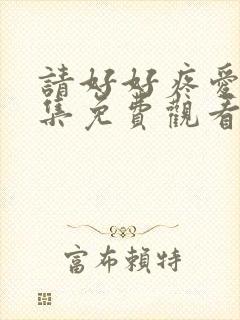 請好好疼愛
集免費觀看
富布賴特